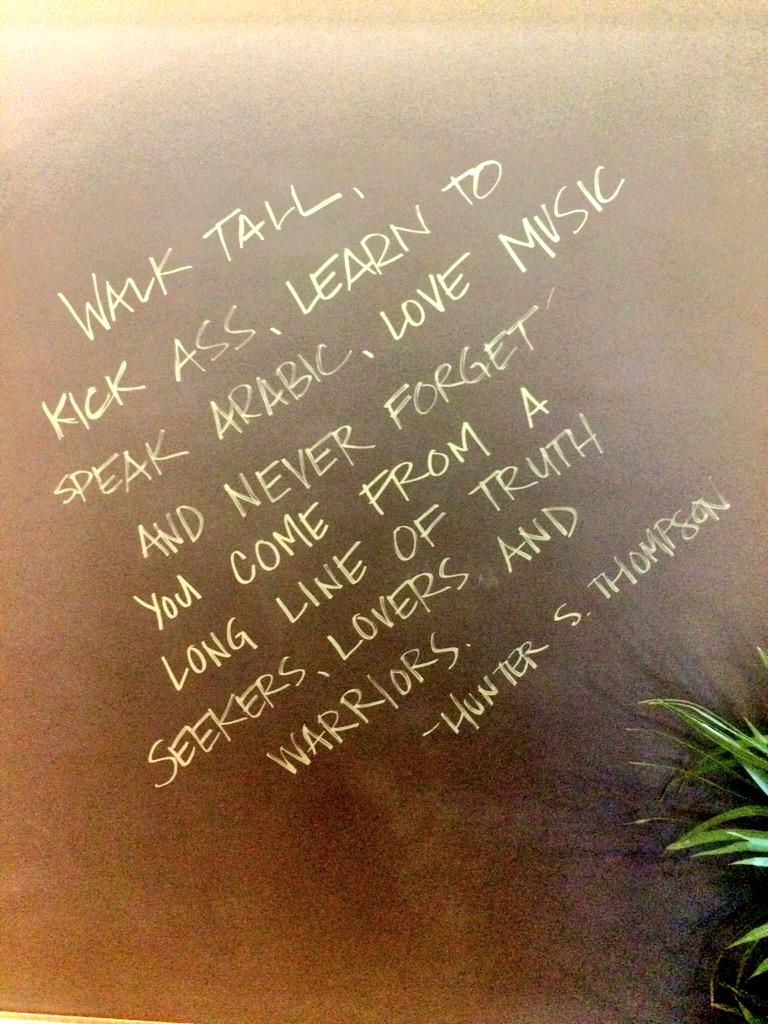 WALK TALL,
KICK ASS, LEARN TO
SPEAK ARABIC, LOVE MUSIC
AND NEVER FORGET
YOU COME FROM A
LONG LINE OF TRUTH
SEEKERS, LOVERS AND
WARRIORS.
-HUNTER S. THOMPSON